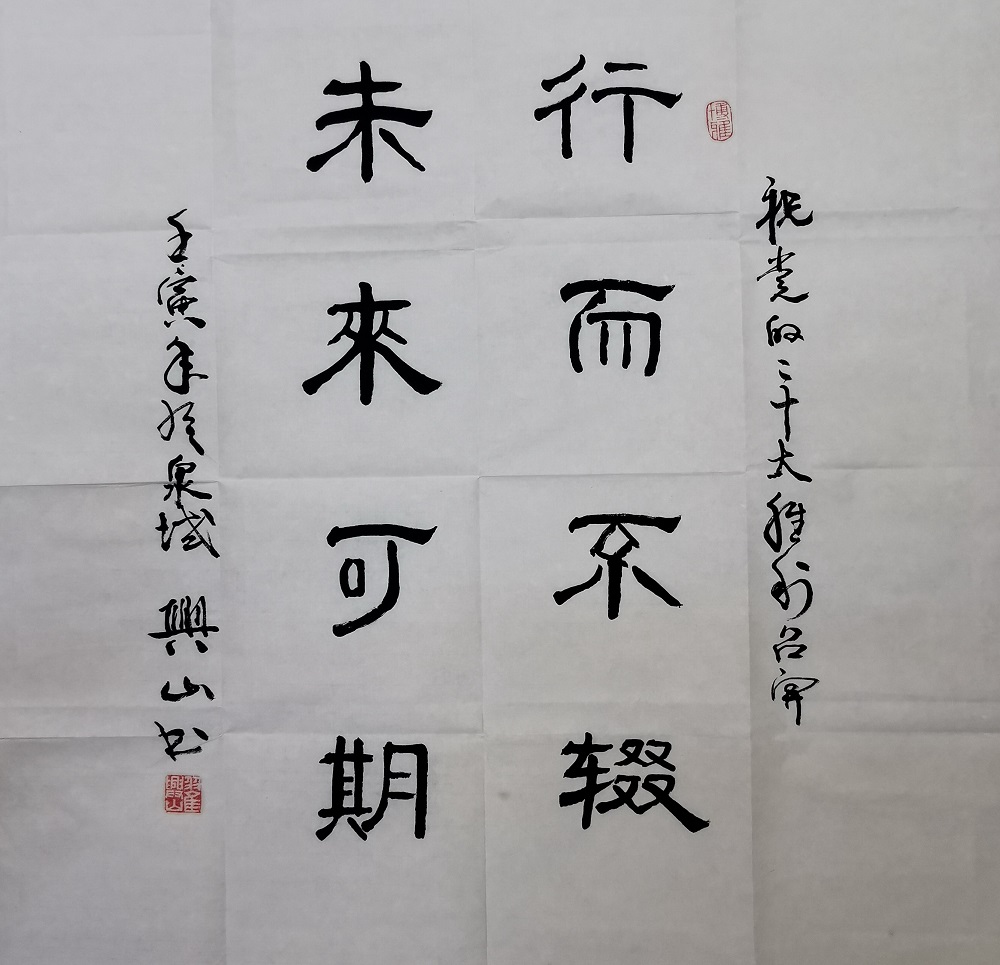 祝党的二十大胜利召開
博雅
行而不辍
未來可期
壬寅年於泉城 興山书
翟興山